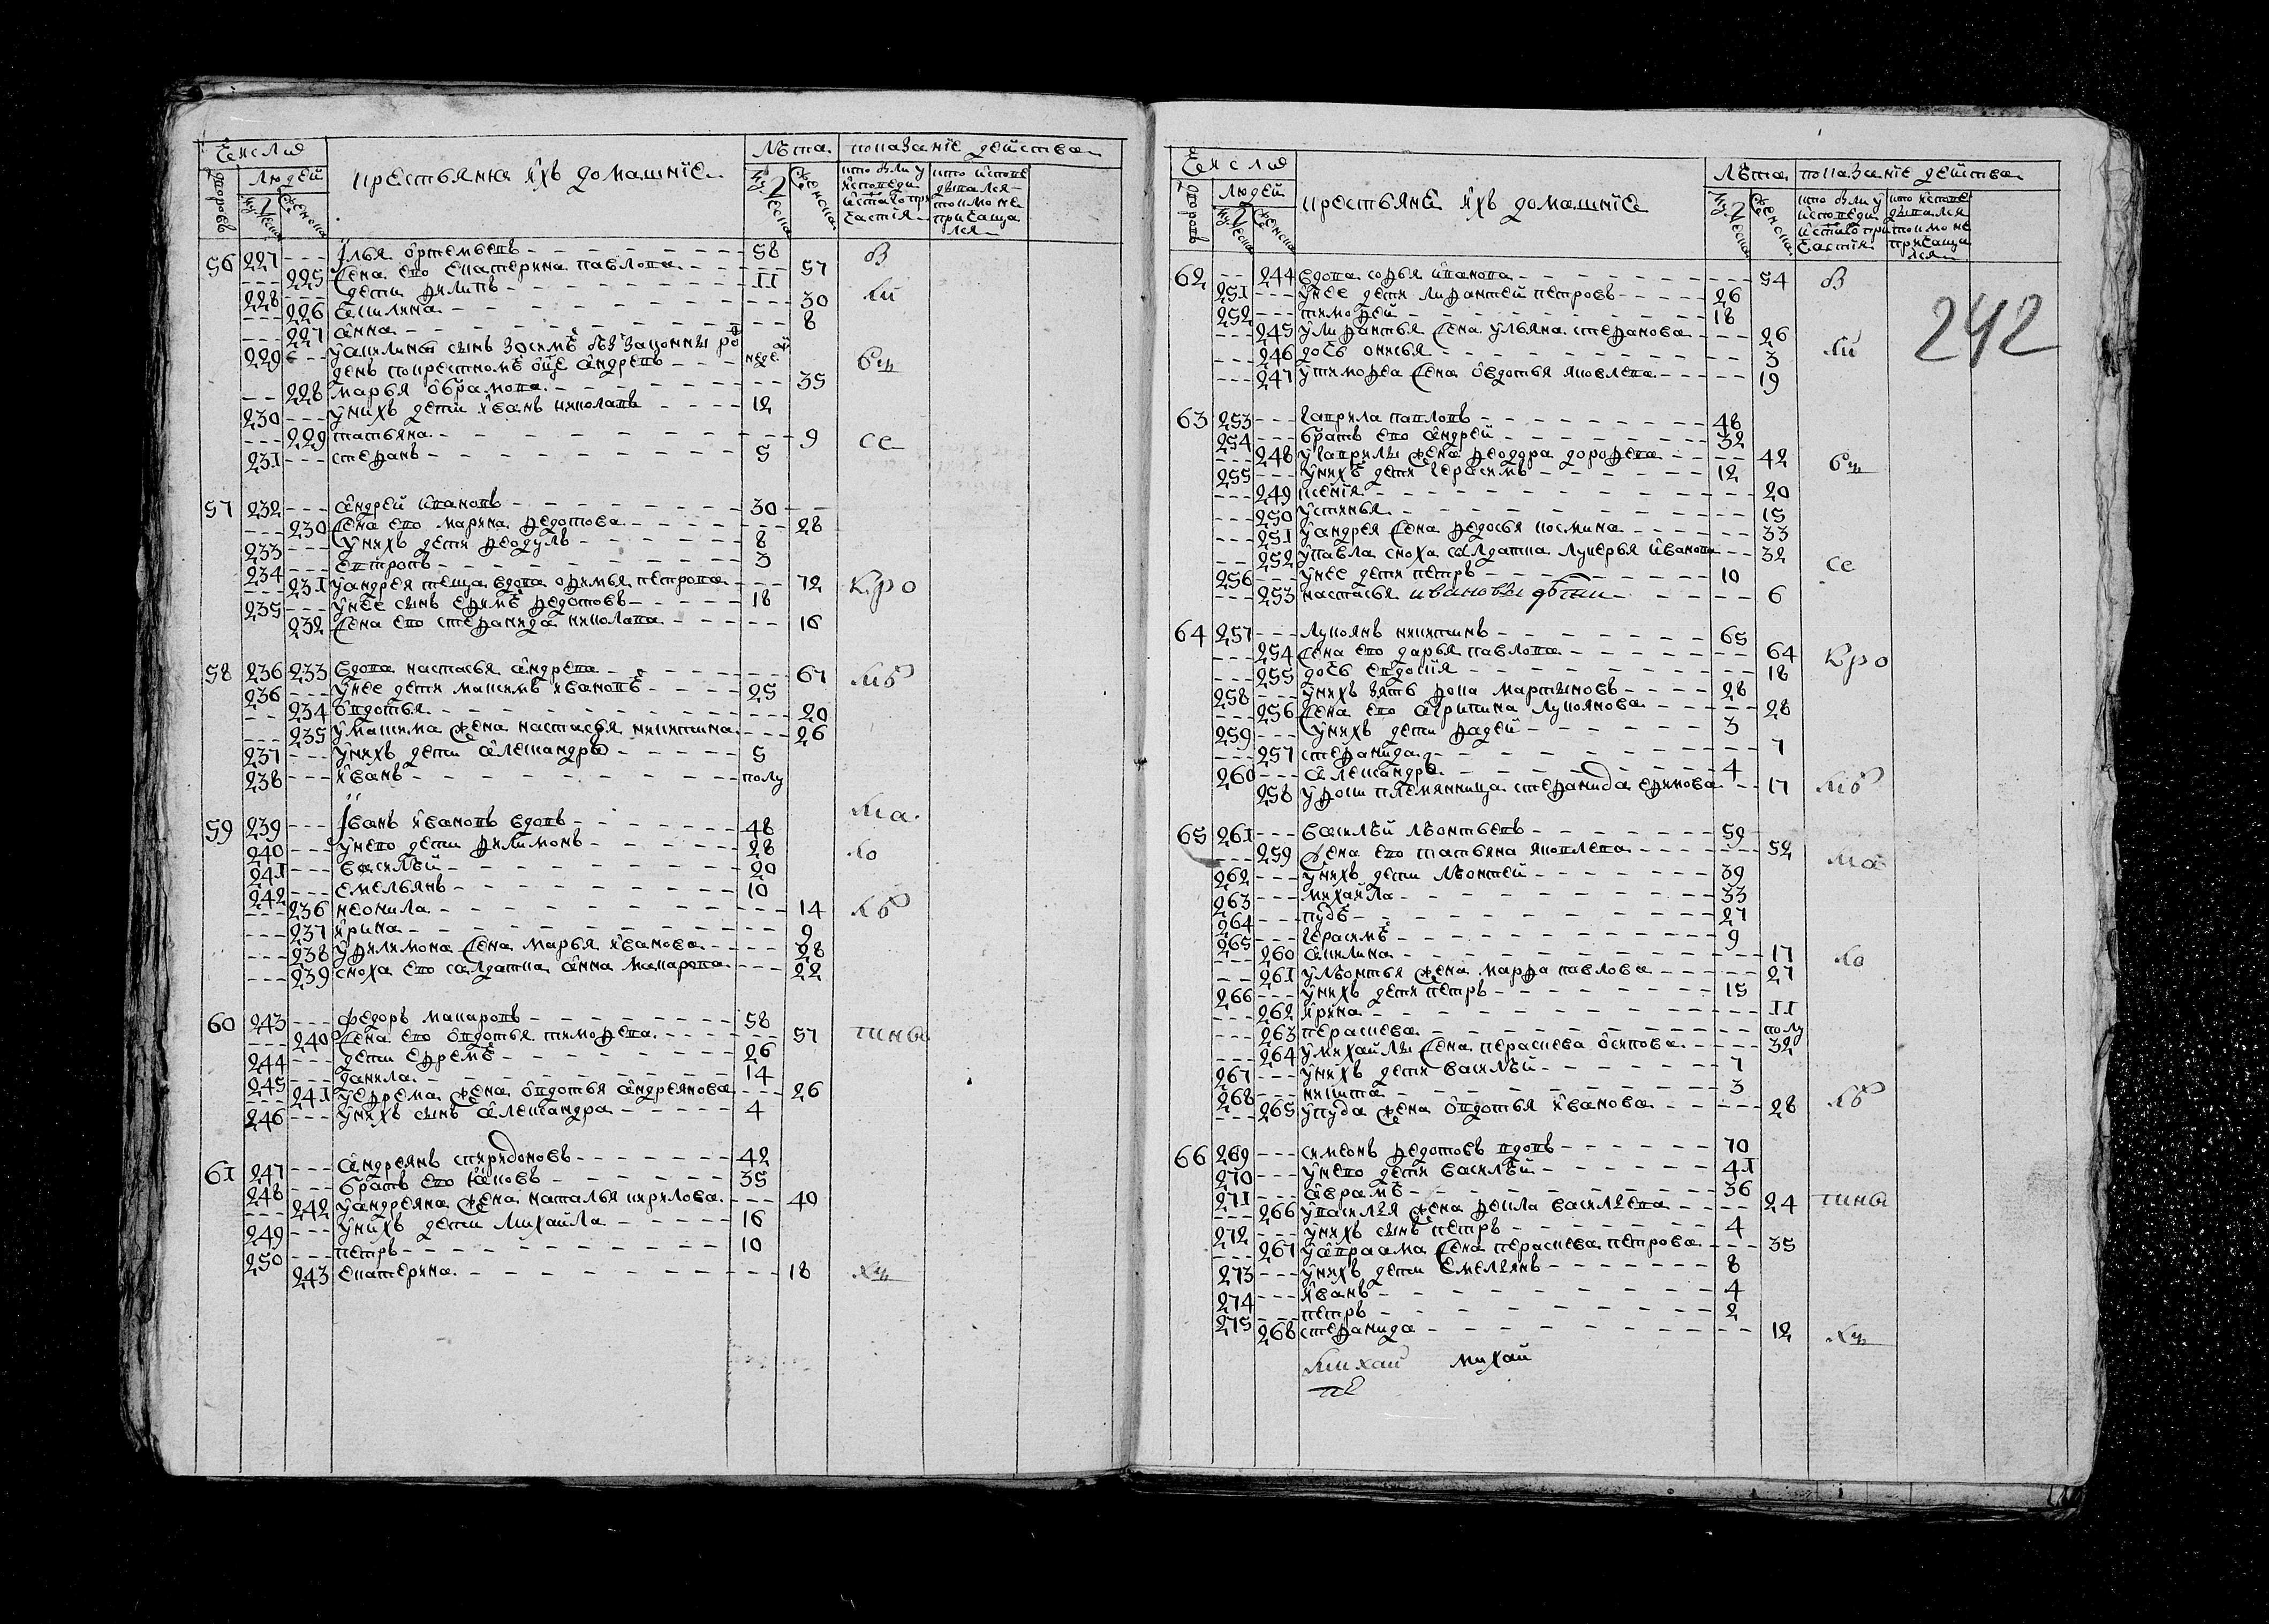 Числа
Людей
крестьяня ихъ домашние
Лѣта
показание действа
56 227 --- Илья Ортемьевъ 58
--- 225 Жена его Екатерина павлова 57
228 --- дети филипъ II
--- 226 Акилина 30
--- 227 Анна 8
229 --- уакилины сынъ Зосимъ безъ законны ро
день покрестномъ Отце Андревъ неде
--- 228 марья Обрамова 35
230 --- унихъ дети Иванъ николавъ 12
--- 229 татьяна 9
231 --- стефанъ 5
57 232 --- Андрей Ивановъ 30
--- 230 Жена его марина федотова 28
233 --- унихъ дети феодулъ 8
234 --- Евтропъ 3
--- 231 уандрея теща вдова офимья петрова 72
235 --- унее сынъ ефимъ федотовъ 18
--- 232 Жена его стефанида николава 16
58 236 233 вдова настасья Андрева 67
236 --- унее дети максимъ Ивановъ 25
--- 234 Овдотья 20
--- 235 умаксима жена настасья никитина 26
237 --- унихъ дети Александръ 5
238 --- Иванъ полу
59 239 --- Иванъ Ивановъ вдовъ 48
240 --- унего дети филимонъ 28
241 --- василѣй 20
242 --- емельянъ 10
--- 236 неонила 14
--- 237 Ирина 9
--- 238 уфилимона Жена марья Иванова 28
--- 239 сноха его салдатка Анна макарова 22
60 243 --- федоръ макаровъ 58
--- 240 Жена его Овдотья тимофева 57
244 --- дети ефремъ 26
245 --- данила 14
--- 241 уефрема жена Овдотья Андреянова 26
246 --- унихъ сынъ Александра 4
61 247 --- Андреянъ спиридоновъ 42
248 --- братъ его Яковъ 35
--- 242 уандреяна жена наталья кирилова 40
249 --- унихъ дети михайла 16
250 --- петръ 10
--- 243 екатерина 18
Числа
Людей
крестьяне ихъ домашние
Лѣта
показание действа
242
62 --- 244 вдова софья Иванова 54
251 --- унее дети лифантей петровъ 26
252 --- тимофей 18
--- 245 улифантья Жена ульяна стефанова 26
--- 246 дочь онисья 3
--- 247 утимофеа Жена Овдотья яковлева 19
63 253 --- гаврила павловъ 48
254 --- братъ его Андрей 32
--- 248 угаврилы жена феодора дорофева 42
255 --- унихъ дети герасимъ 12
--- 249 ксения 20
--- 250 устинья 15
--- 251 уандрея Жена федосья космина 33
--- 252 упавла сноха салдатка лукерья Иванова 32
256 --- унее дети петръ 10
--- 253 настасья ивановы дѣти 6
64 257 --- лукоянъ никитинъ 65
--- 254 Жена его дарья павлова 64
--- 255 дочь евдокия 18
258 --- унихъ зять фока мартыновъ 28
--- 256 Жена его Агрипина лукоянова 28
259 --- унихъ дети фадей 3
--- 257 стефанида 7
260 --- Александръ 4
258 уфоки племянница стефанида ефимова 17
65 261 --- василѣй лѣонтьевъ 59
--- 259 жена его татьяна яковлева 52
262 --- унихъ дети лѣонтей 39
263 --- михайла 33
264 --- пудъ 27
265 --- герасимъ 9
--- 260 Акилина 17
--- 261 улѣонтья жена марфа павлова 27
266 --- унихъ дети петръ 15
--- 262 Ирина II
--- 263 пераскева полу
--- 264 умихайлы Жена пераскева Осипова 32
267 --- унихъ дети василѣй 7
268 --- никита 3
--- 265 упуда жена Овдотья Иванова 28
66 269 --- симеонъ федотовъ вдовъ 70
270 --- унего дети василѣй 41
271 --- Аврамъ 36
--- 266 увасилья жена фекла василѣева 24
272 --- унихъ сынъ петръ 4
--- 267 уавраама Жена пераскева петрова 35
273 --- унихъ дети емелѣянъ 8
274 --- Иванъ 4
275 --- петръ 2
268 стефанида 12
михаи михаи